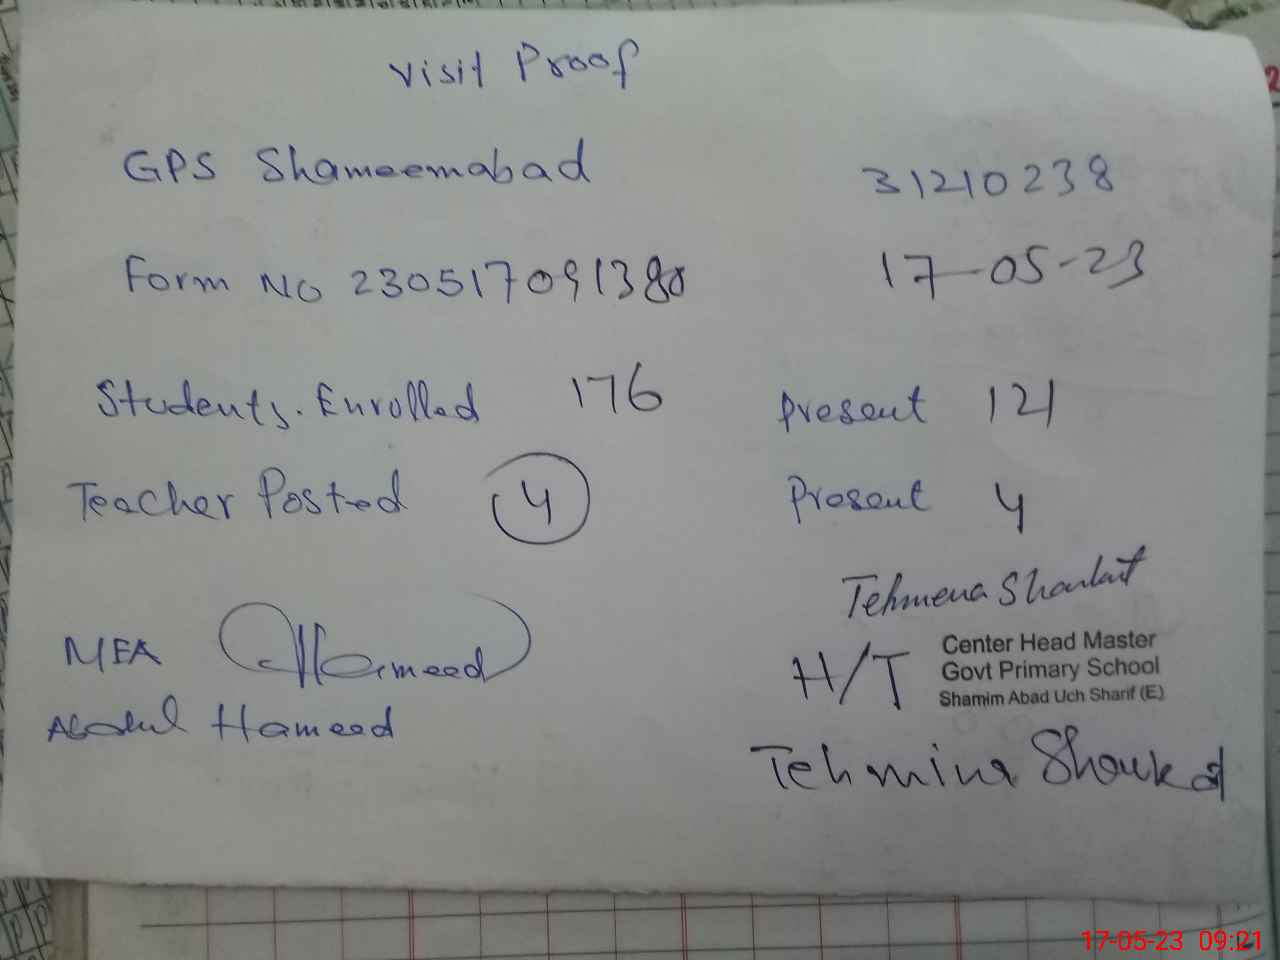 Visit Proof
GPS Shameemabad 31210238
Form No 230517091380 17-05-23
Students. Enrolled 176 Present 121
Teacher Posted 4 Present 4
Tehmena Shaukat
MEA Hameed H/T Center Head Master
Govt Primary School
Shamim Abad Uch Sharif (E)
Abdul Hameed
Tehmina Shoukat
17-05-23 09:21